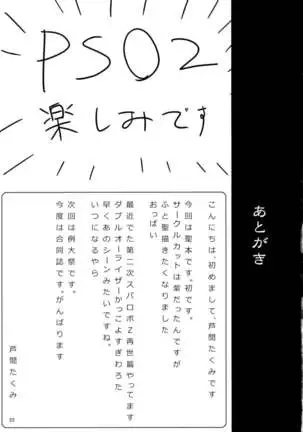 PSO2
楽しみです
あとがき
こんにちは、初めまして、芦間たくみです
今回は聖本です。初です。
サークルカットは紫だったんですが
ふと聖描きたくなりました
おっぱい
最近でた第二次スパロボZ再世篇やってます
ダブルオーライザーかっこよすぎわろた
早くあのシーンみたいですね。
いつになるやら
次回は例大祭です。
今度は合同誌です。がんばります
芦間たくみ